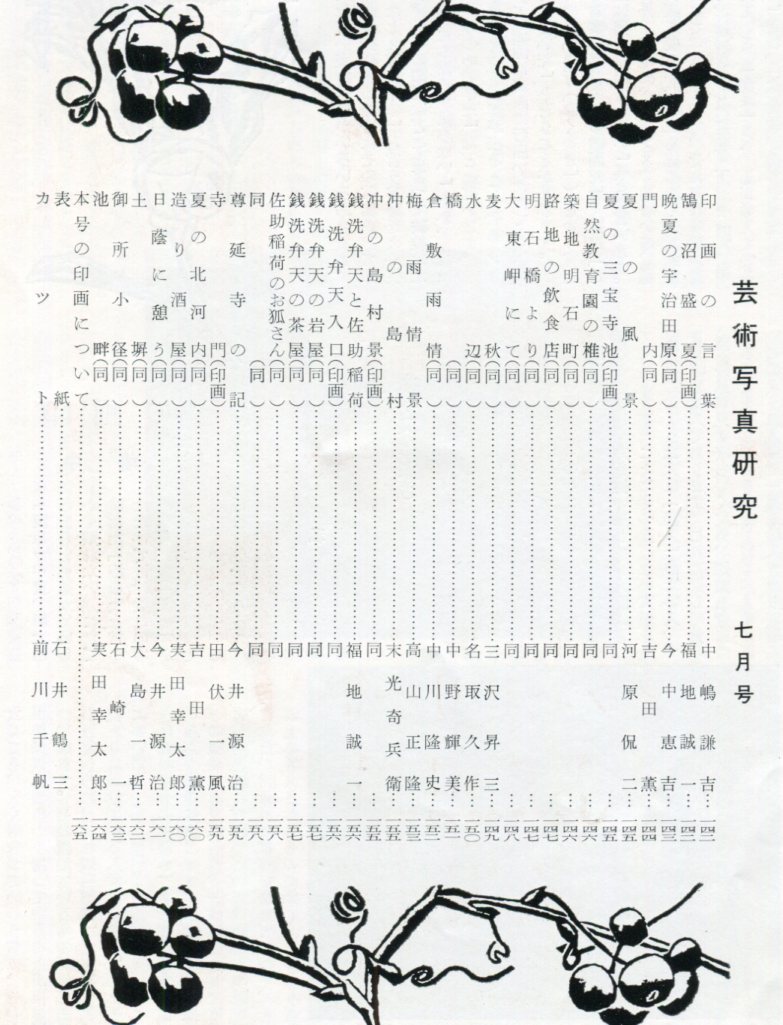 芸術写真研究 七月号
印画の言葉……中嶋謙吉…一四二
鵠沼盛夏(印画)……福地誠一…一四三
晩夏の宇治田原(同)……今中恵吉…一四三
門内(同)……吉田薫…一四四
夏の風景……河原侃二…一四五
夏の三宝寺池(印画)……同…一四五
自然教育園の椎(同)……同…一四六
築地明石町(同)……同…一四六
路地の飲食店(同)……同…一四七
明石橋より(同)……同…一四七
大東岬にて(同)……同…一四八
麦秋(同)……三沢昇三…一四九
水辺(同)……名取久作…一五〇
橋(同)……中野輝美…一五一
倉敷雨情(同)……中川隆史…一五二
梅雨情景……高山正隆…一五三
冲の島村……末光奇兵衛…一五五
冲の島村景(印画)……同…一五五
銭洗弁天と佐助稲荷……福地誠一…一五六
銭洗弁天入口(印画)……同…一五六
銭洗弁天の岩屋(同)……同…一五七
銭洗弁天の茶屋(同)……同…一五七
佐助稲荷のお狐さん(同)……同…一五八
同(同)……同…一五八
尊延寺の記……今井源治…一五九
寺門(印画)……田伏一風…一五九
夏の北河内(同)……吉田薫…一六〇
造り酒屋(同)……実田幸太郎…一六〇
日蔭に憩う(同)……今井源治…一六一
土塀(同)……大島一哲…一六二
御所小径(同)……石崎一…一六三
池畔(同)……実田幸太郎…一六四
本号の印画について……一六五
表紙……石井鶴三
カット……前川千帆